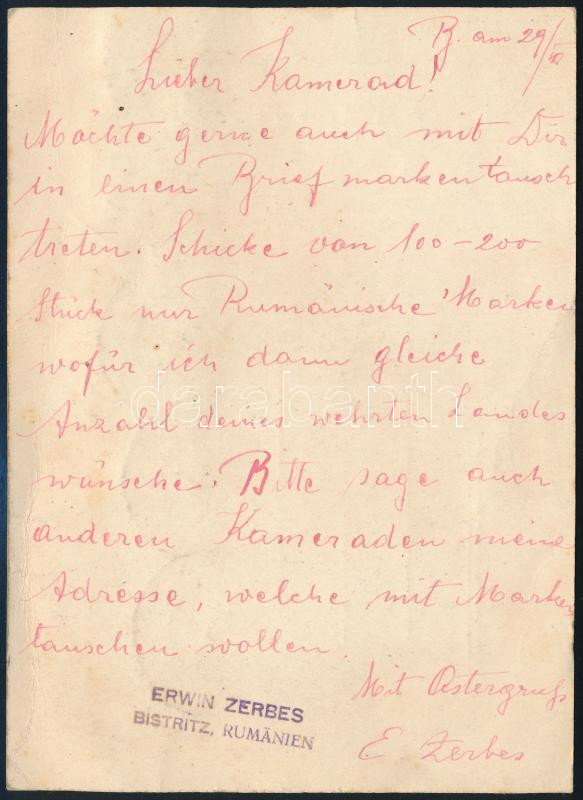 B. am 29/
Lieber Kamerad!
Möchte gerne auch mit Dir
in einen Briefmarkentausch
treten. Schicke von 100-200
Stück nur Rumänische Marken
wofür ich dann gleiche
Anzahl deines wehrten Landes
wünsche. Bitte sage auch
anderen Kameraden meine
Adresse, welche mit Marken
tauschen wollen.
Mit Ostergruß
E Zerbes
ERWIN ZERBES
BISTRITZ, RUMÄNIEN
darabanth